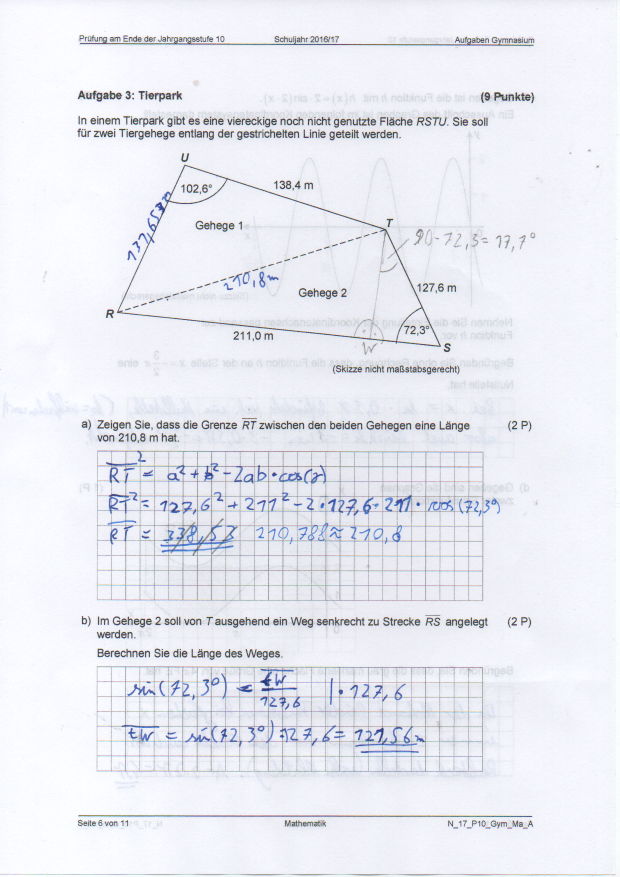 Prüfung am Ende der Jahrgangsstufe 10 Schuljahr 2016/17 Aufgaben Gymnasium
Aufgabe 3: Tierpark (9 Punkte)
In einem Tierpark gibt es eine viereckige noch nicht genutzte Fläche RSTU. Sie soll
für zwei Tiergehege entlang der gestrichelten Linie geteilt werden.
U
102,6°
138,4 m
137,657m
Gehege 1
T
90-72,3=17,7°
210,8m
Gehege 2
127,6 m
R
211,0 m
W
72,3°
S
(Skizze nicht maßstabsgerecht)
a) Zeigen Sie, dass die Grenze RT zwischen den beiden Gehegen eine Länge (2 P)
von 210,8 m hat.
RT² = a² + b² - 2ab · cos(γ)
RT² = 127,6² + 211² - 2 · 127,6 · 211 · cos(72,3°)
RT = 338,53 210,788 ≈ 210,8
b) Im Gehege 2 soll von T ausgehend ein Weg senkrecht zu Strecke RS angelegt (2 P)
werden.
Berechnen Sie die Länge des Weges.
sin(72,3°) = tW/127,6 | · 127,6
tW = sin(72,3°) · 127,6 = 121,56m
Seite 6 von 11 Mathematik N_17_P10_Gym_Ma_A